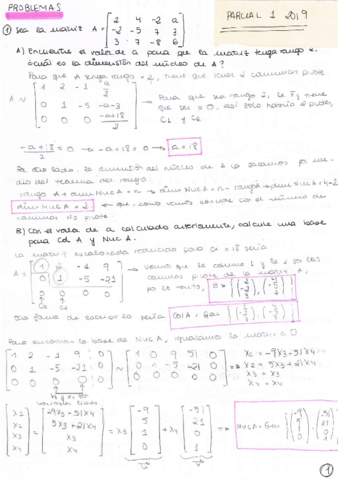 PROBLEMAS
PARCIAL 1 2019
① Sea la matriz A = [2 4 -2 a; -2 -5 7 3; 3 7 -8 6]
A) Encuentre el valor de a para que la matriz tenga rango 2.
¿Cuál es la dimensión del núcleo de A?
Para que A tenga rango = 2, tiene que tener 2 columnas pivote
A ~ [1 2 -1 a/2; 0 1 -5 -a-3; 0 0 0 (-a+18)/2] → Para que sea rango 2, la F3 tiene que ser = 0, así solo habría 2 pivotes, C1 y C2
(-a+18)/2 = 0 → -a+18 = 0 → a=18
Por otro lado, la dimensión del núcleo de A la sacamos por medio del teorema del rango.
rango A + dim Nuc A = n → dim Nuc A = n - rango A → dim Nuc A = 4-2
dim Nuc A = 2 → que, como vemos coincide con el número de columnas no pivote.
B) Con el valor de a calculado anteriormente, calcule una base
para Col A y Nuc A.
La matriz escalonada reducida para a = 18 sería
A = [1 2 -1 9; 0 1 -5 -21; 0 0 0 0] → vemos que la columna 1 y la 2 son las columnas pivote de la matriz A,
por lo tanto, B =
C1 C2
Col A = Gen
Para encontrar la base de Nuc A, igualamos la matriz a 0
[1 2 -1 9 0; 0 1 -5 -21 0; 0 0 0 0 0] ~ [1 0 9 51 0; 0 1 -5 -21 0; 0 0 0 0 0] ⇒ x1 = -9x3 -51x4
x2 = 5x3 + 21x4
x3 = x3
x4 = x4
variables libres
[x1; x2; x3; x4] = [-9x3 -51x4; 5x3 + 21x4; x3; x4] = x3 [-9; 5; 1; 0] + x4 [-51; 21; 0; 1] ⇒ Nuc A = Gen {(-9; 5; 1; 0), (-51; 21; 0; 1)}
①